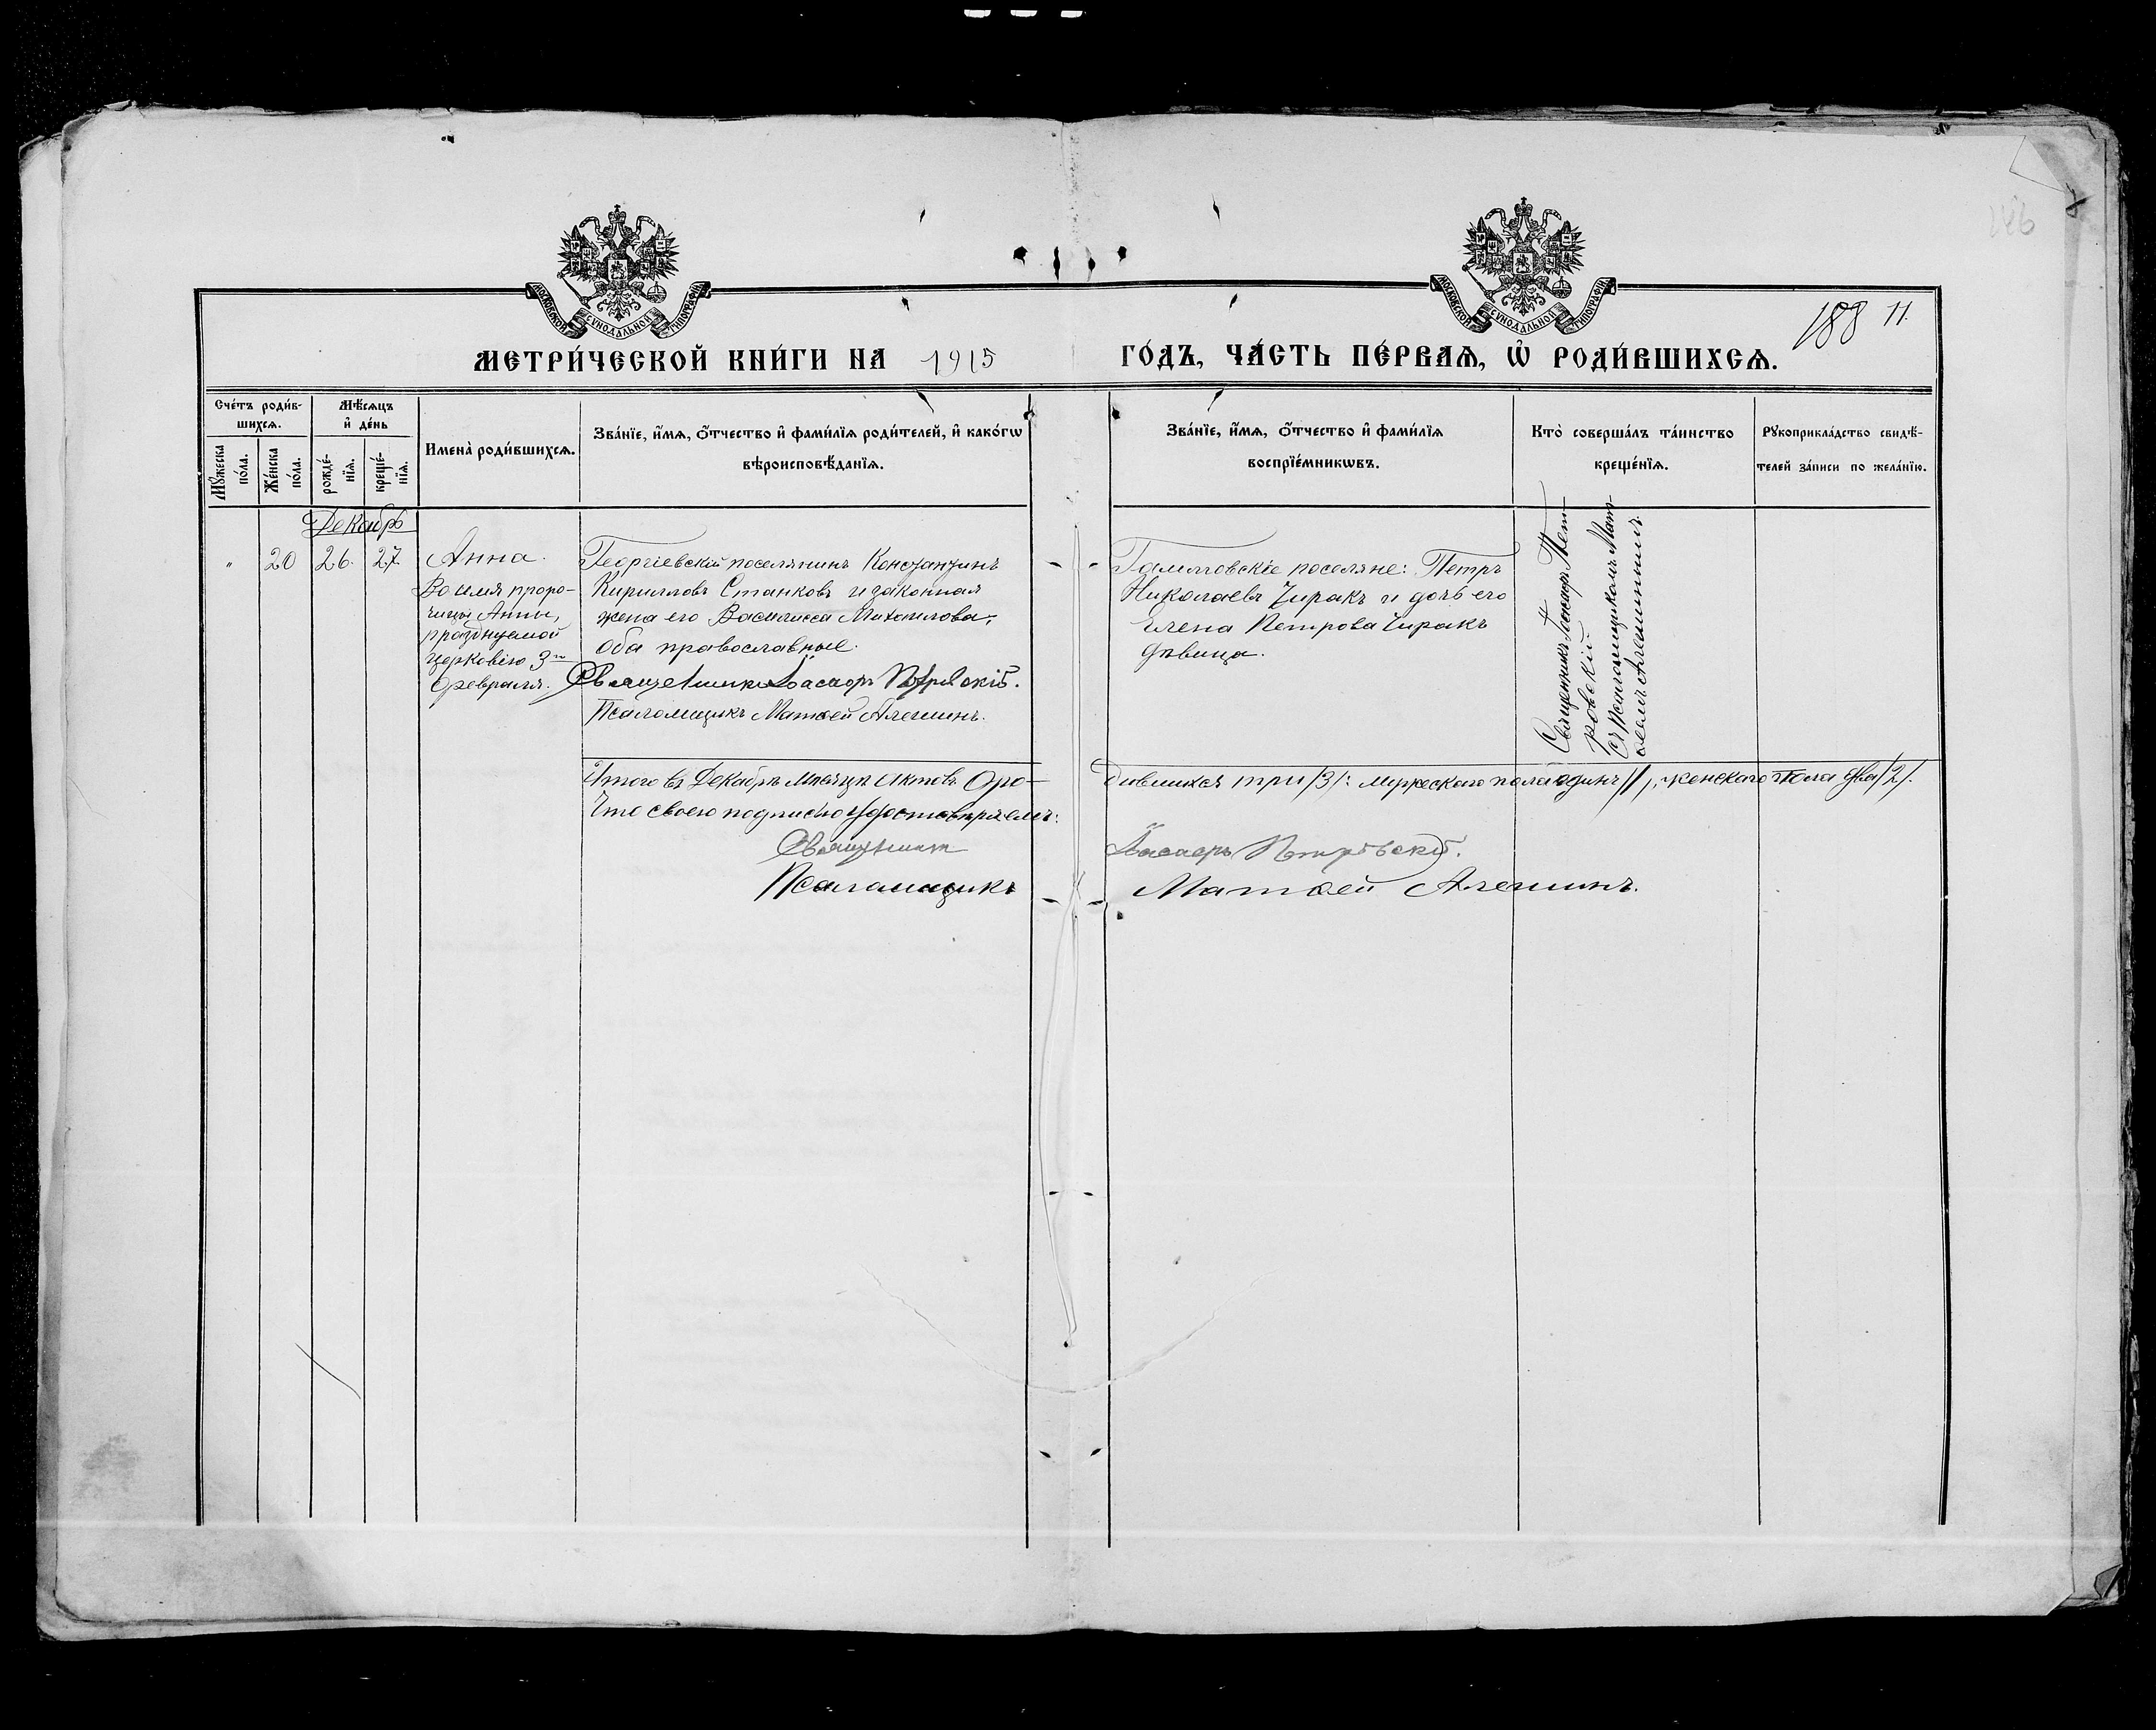 МОСКОВСКОЙ СУНОДАЛЬНОЙ ТИПОГРАФІИ
МОСКОВСКОЙ СУНОДАЛЬНОЙ ТИПОГРАФІИ
188 11.
МЕТРИ́ЧЕСКОЙ КНИ́ГИ НА 1915 ГО́ДЪ, ЧА́СТЬ ПЕ́РВАѦ, Ѡ҆ РОДИ́ВШИХСѦ.
Сче́тъ роди́в-
шихсѧ.
Мѣ́сѧцъ
и҆ де́нь
Мꙋ́жеска
по́ла.
Же́нска
по́ла.
рожде́-
нїѧ.
креще́-
нїѧ.
Имена̀ роди́вшихсѧ.
Зва́нїе, и҆́мѧ, ѻ҆́тчество и҆ фами́лїѧ роди́телей, и҆ како́гѡ
вѣроисповѣ́данїѧ.
Зва́нїе, и҆́мѧ, ѻ҆́тчество и҆ фами́лїѧ
воспрїе́мникѡвъ.
Кто̀ соверша́лъ та́инство
креще́нїѧ.
Рꙋкоприкла́дство свидѣ́-
телей за́писи по жела́нїю.
Декабрь
" 20 26. 27. Анна.
Во имя проро-
чицы Анны,
празднуемой
церковію 3го
Февраля.
Георгіевскій поселянинъ Константинъ
Кирилловъ Станковъ и законная
жена его Василисса Михаилова,
оба православные.
Священникъ Іоасафъ Петровскій.
Псаломщикъ Матѳей Алешинъ.
поселяне: Петръ
Николаевъ Чиракъ и дочь его
Елена Петрова Чиракъ
дѣвица.
Священникъ Іоасафъ Пет-
ровскій
съ Псаломщикомъ Мат-
ѳеемъ Алешинымъ.
Итого въ Декабрѣ мѣсяцѣ актовъ о ро-
дившихся три /3/: мужескаго пола одинъ /1/, женскаго пола два /2/.
Что своею подписью удостовѣряемъ:
Священникъ Іоасафъ Петровскій.
Псаломщикъ Матѳей Алешинъ.